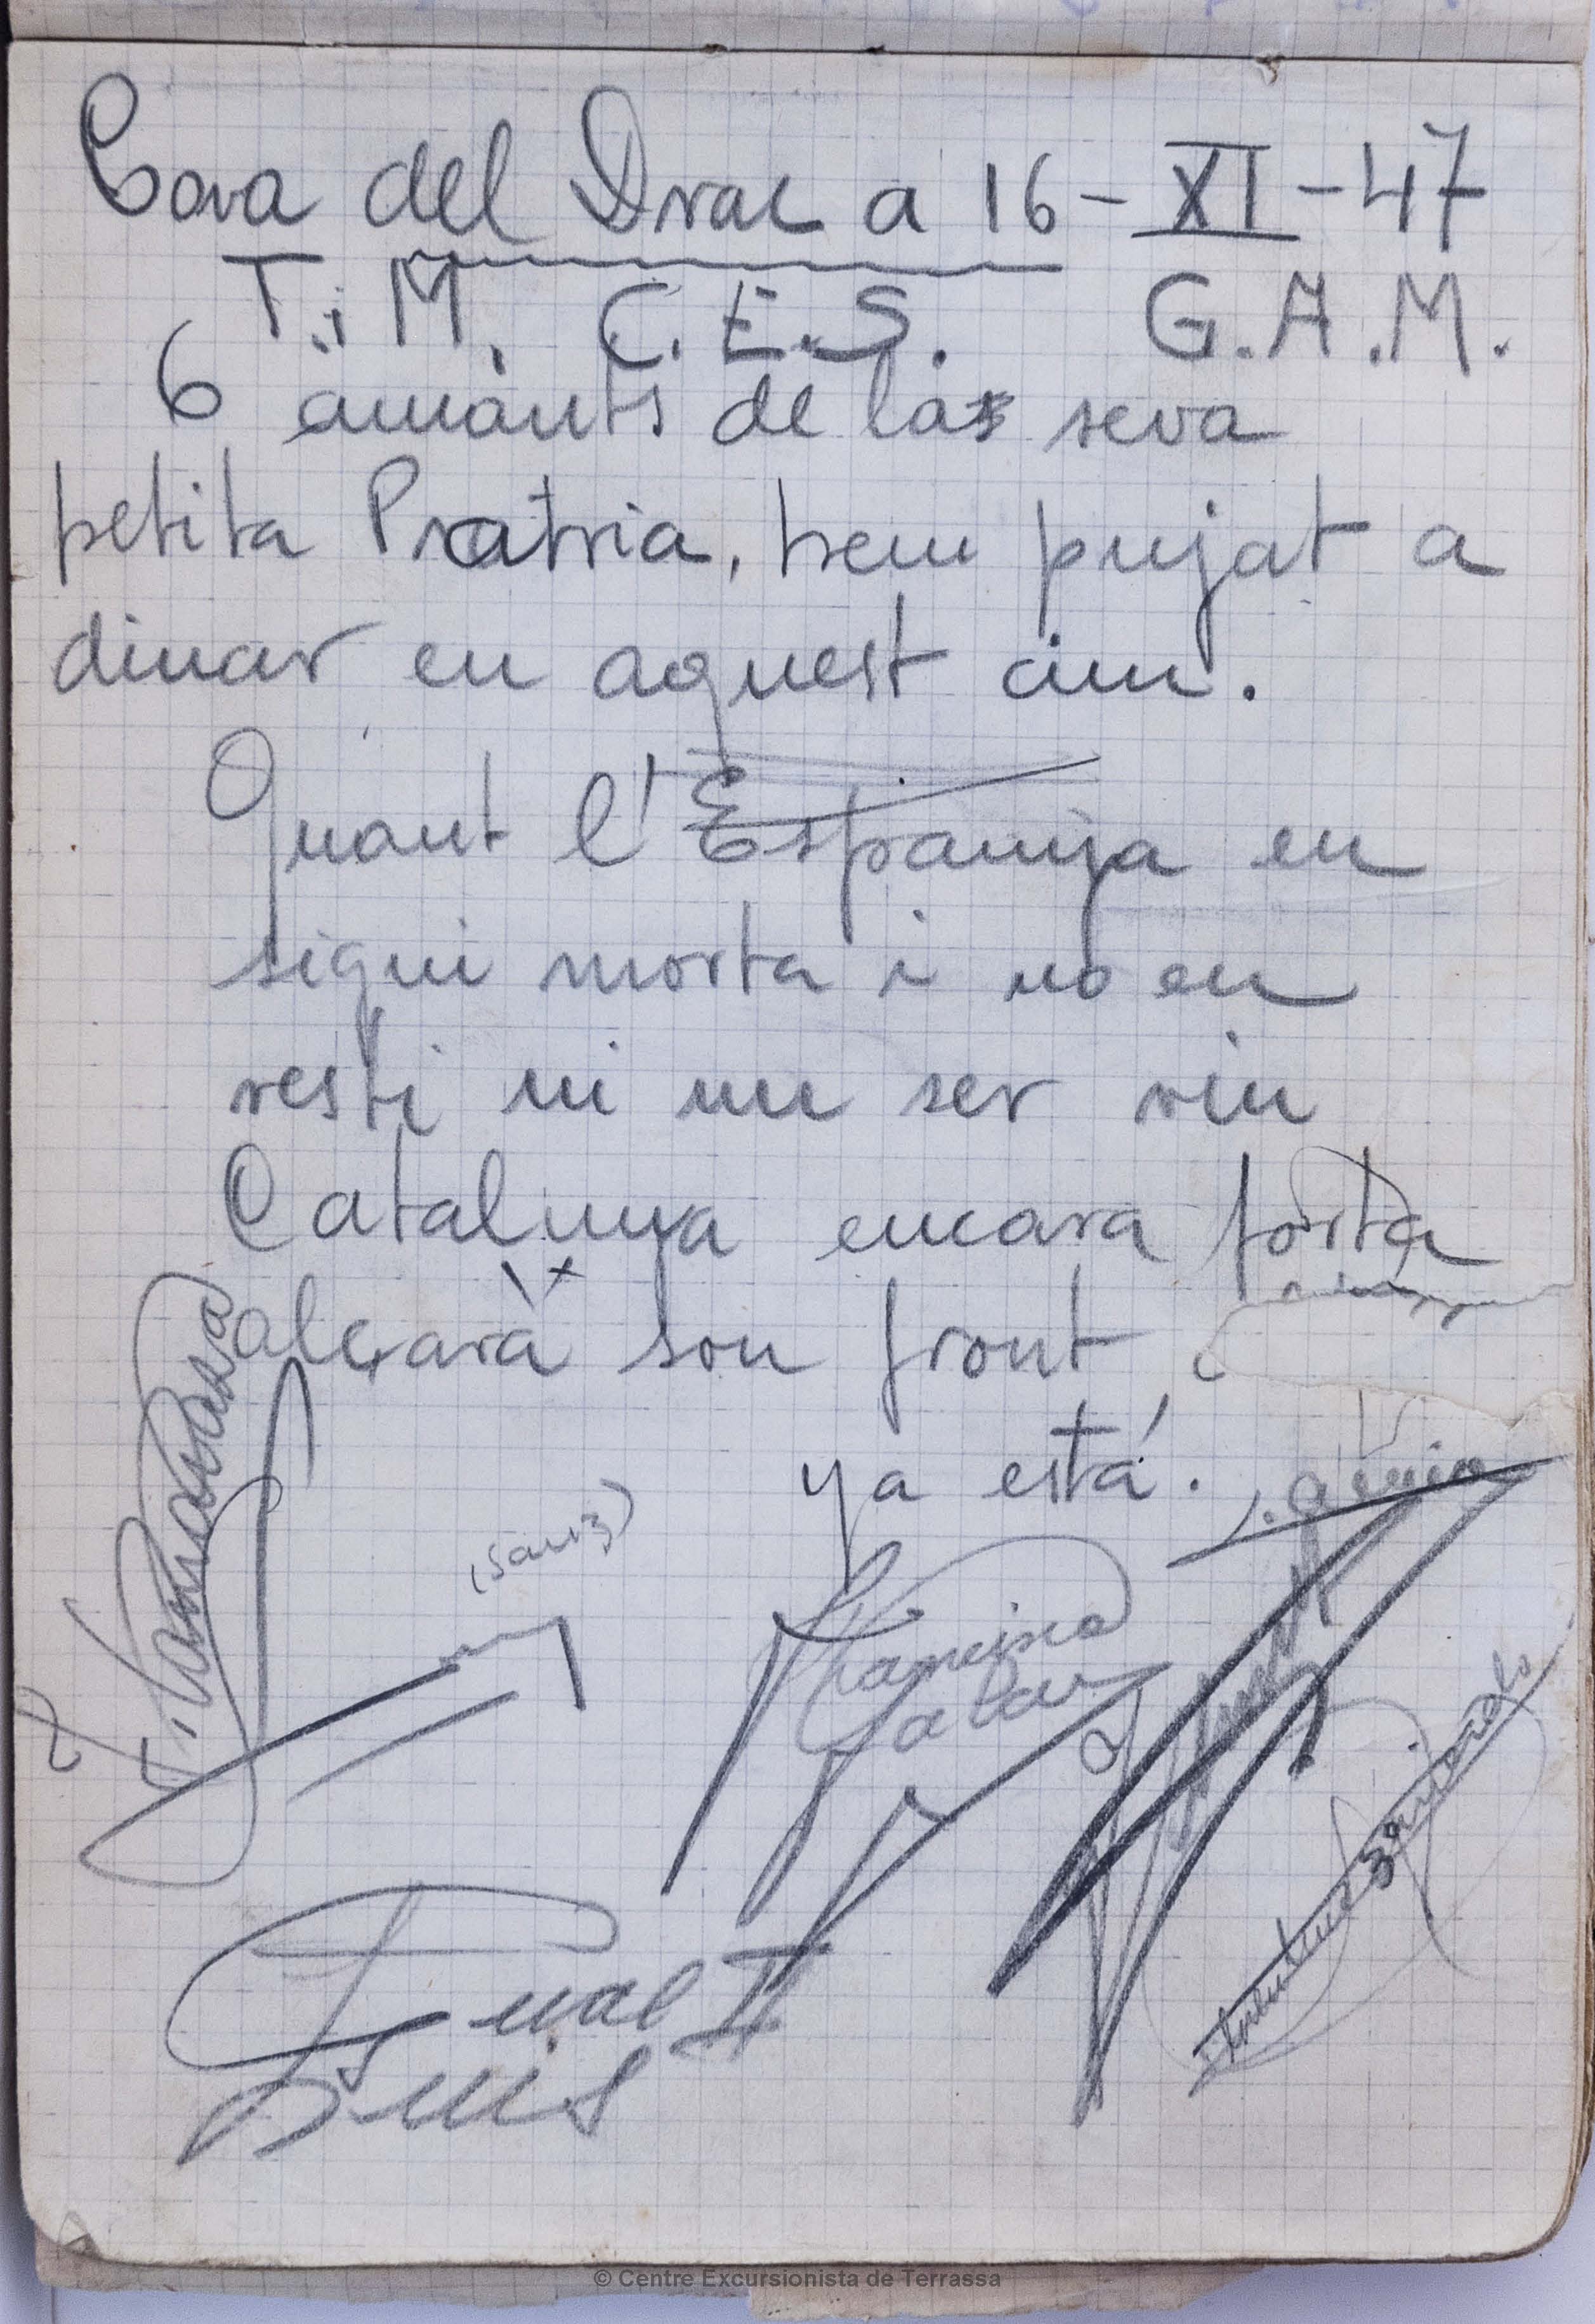 Cova del Drac a 16-XI-47
T. i M. C.E.S. G.A.M.
6 amants de la seva
petita Patria, hem pujat a
dinar en aquest cim.
Quant l'Espanya en
sigui morta i no en
resti ni un ser viu
Catalunya encara forta
alçarà son front
ya está.
(Sanz)
Francisca
Gual II
Luis
© Centre Excursionista de Terrassa